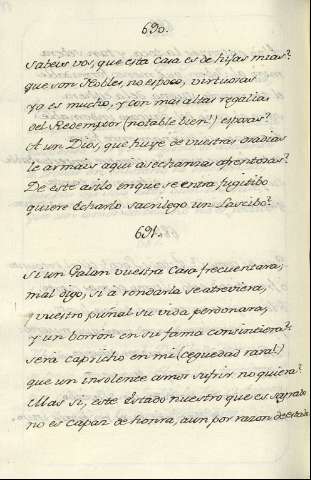 690.
Sabeis vos, que esta Casa es de hijas mias?
que son Nobles, no es poco, virtuosas
ya es mucho, y con mas altas regalias
del Redemptor (notable bien!) esposas?
A un Dios, que huye de vuestras osadias
le armais aqui asechanzas afrentosas?
De este asilo en que se entra fugitibo
quiere Echarlo sacrilego un Lascibo?
691.
Si un Galan vuestra Casa frecuentara,
mal digo, si a rondarla se atreviera,
vuestro puñal su vida perdonara,
y un borrón en su fama consintiera?
será capricho en mi (ceguedad rara!)
que un insolente amor sufrir no quiera?
Mas si, este Estado nuestro que es sagrado
no es capaz de honra, aun por razon de estado